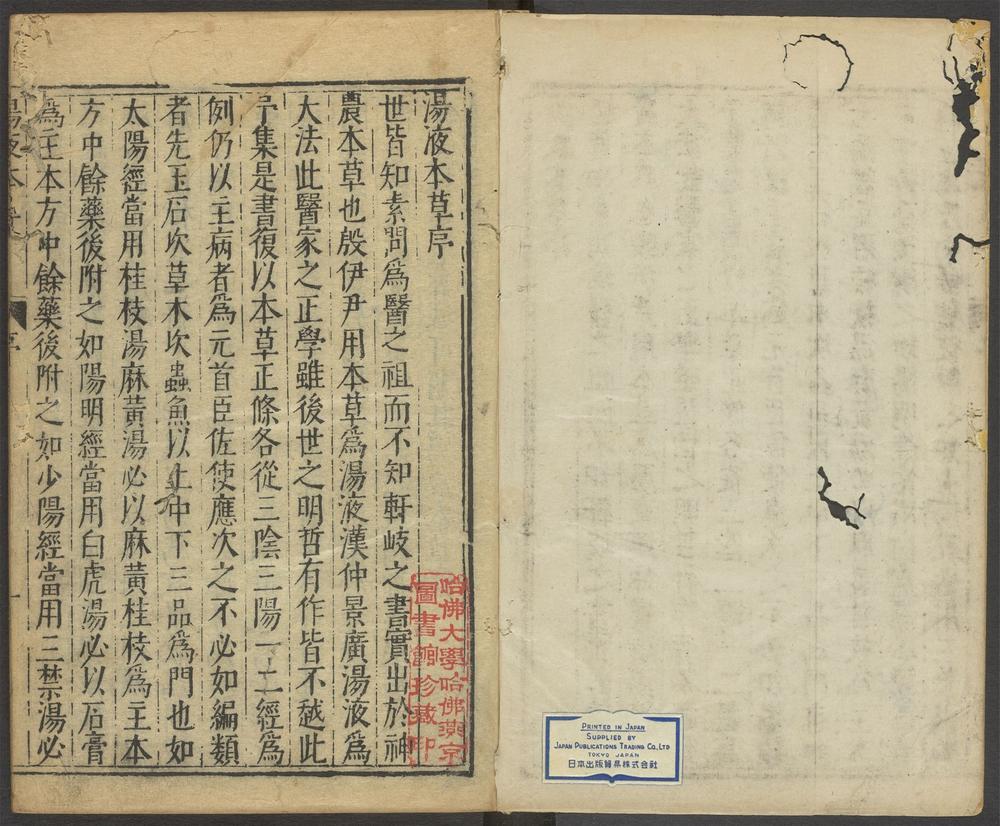 湯液本草序
世皆知素問爲醫之祖而不知軒岐之書實出於神
農本草也殷伊尹用本草爲湯液漢仲景廣湯液爲
大法此醫家之正學雖後世之明哲有作皆不越此
予集是書復以本草正條各從三陰三陽一十二經爲
例仍以主病者爲元首臣佐使應次之不必如編類
者先玉石次草木次蟲魚以上中下三品爲門也如
太陽經當用桂枝湯麻黃湯必以麻黃桂枝爲主本
方中餘藥後附之如陽明經當用白虎湯必以石膏
爲主本方中餘藥後附之如少陽經當用三禁湯必
湯液本草
序
一
哈佛大學哈佛燕京
圖書館珍藏印
PRINTED IN JAPAN
SUPPLIED BY
JAPAN PUBLICATIONS TRADING CO., LTD
TOKYO JAPAN
日本出版貿易株式会社